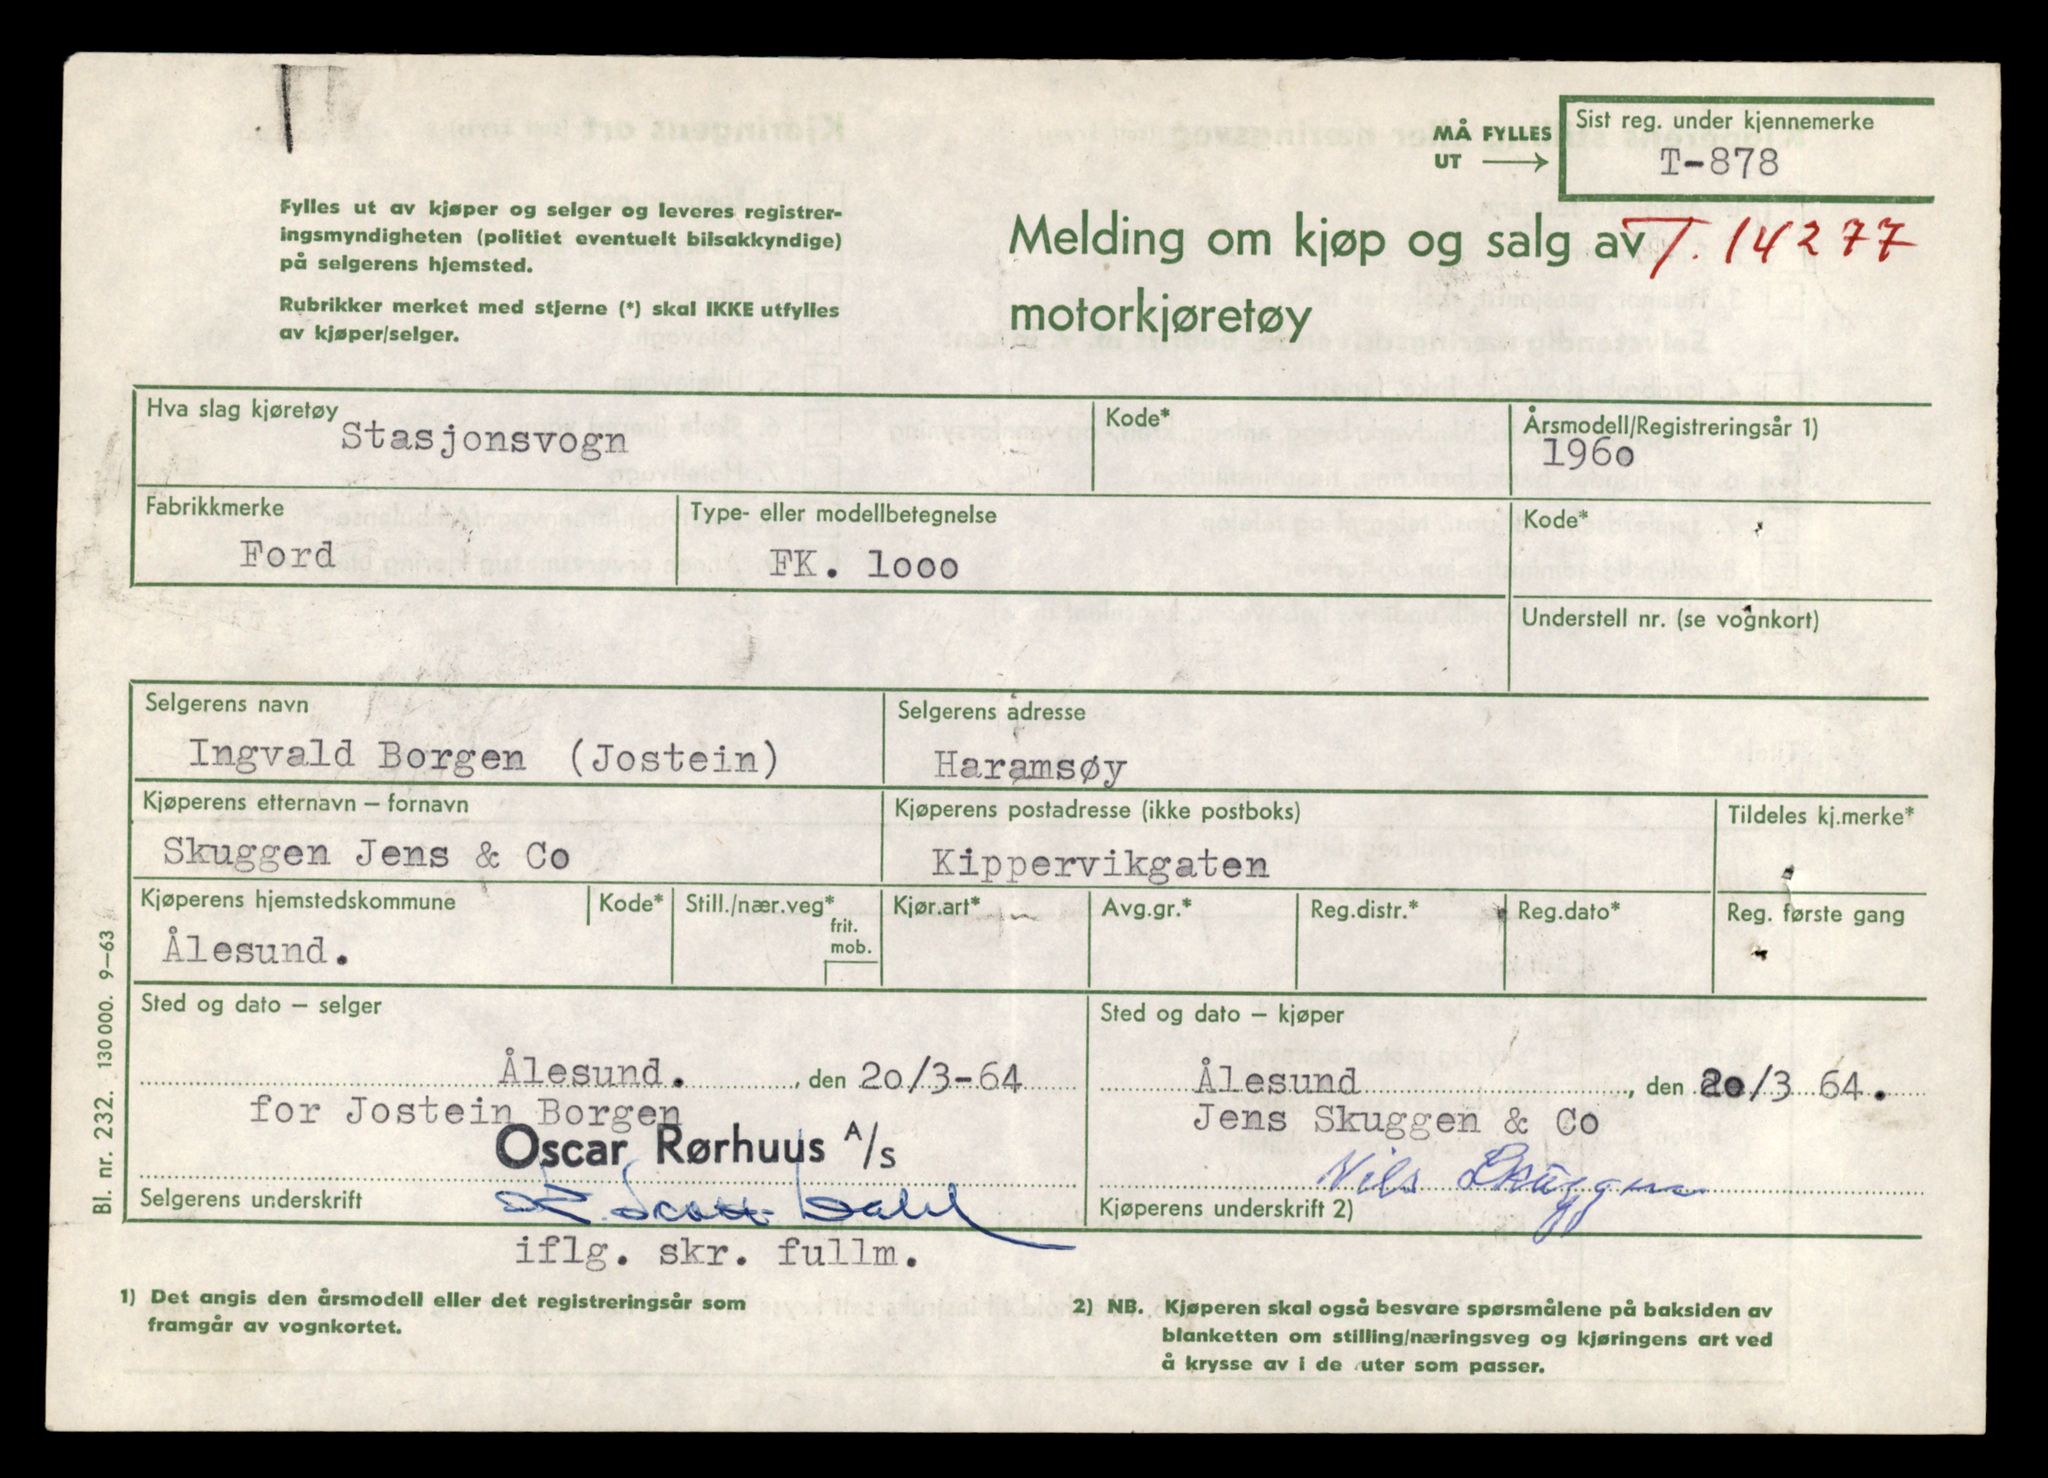 MÅ FYLLES
UT →
Sist reg. under kjennemerke
T-878
Fylles ut av kjøper og selger og leveres registrer-
ingsmyndigheten (politiet eventuelt bilsakkyndige)
på selgerens hjemsted.
Rubrikker merket med stjerne (*) skal IKKE utfylles
av kjøper/selger.
Melding om kjøp og salg av T. 14277
motorkjøretøy
Hva slag kjøretøy
Stasjonsvogn
Kode*
Årsmodell/Registreringsår 1)
1960
Fabrikkmerke
Ford
Type- eller modellbetegnelse
FK. 1000
Kode*
Understell nr. (se vognkort)
Selgerens navn
Ingvald Borgen (Jostein)
Selgerens adresse
Haramsøy
Kjøperens etternavn – fornavn
Skuggen Jens & Co
Kjøperens postadresse (ikke postboks)
Kippervikgaten
Tildeles kj.merke*
Kjøperens hjemstedskommune
Ålesund.
Kode*
Still./nær.veg*
frit.
mob.
Kjør.art*
Avg.gr.*
Reg.distr.*
Reg.dato*
Reg. første gang
Sted og dato – selger
Ålesund. , den 20/3-64
for Jostein Borgen
Oscar Rørhuus A/s
Selgerens underskrift
iflg. skr. fullm.
Sted og dato – kjøper
Ålesund , den 20/3 64.
Jens Skuggen & Co
Nils Skuggen
Kjøperens underskrift 2)
1) Det angis den årsmodell eller det registreringsår som
framgår av vognkortet.
2) NB. Kjøperen skal også besvare spørsmålene på baksiden av
blanketten om stilling/næringsveg og kjøringens art ved
å krysse av i de ruter som passer.
Bl. nr. 232. 130 000. 9–63